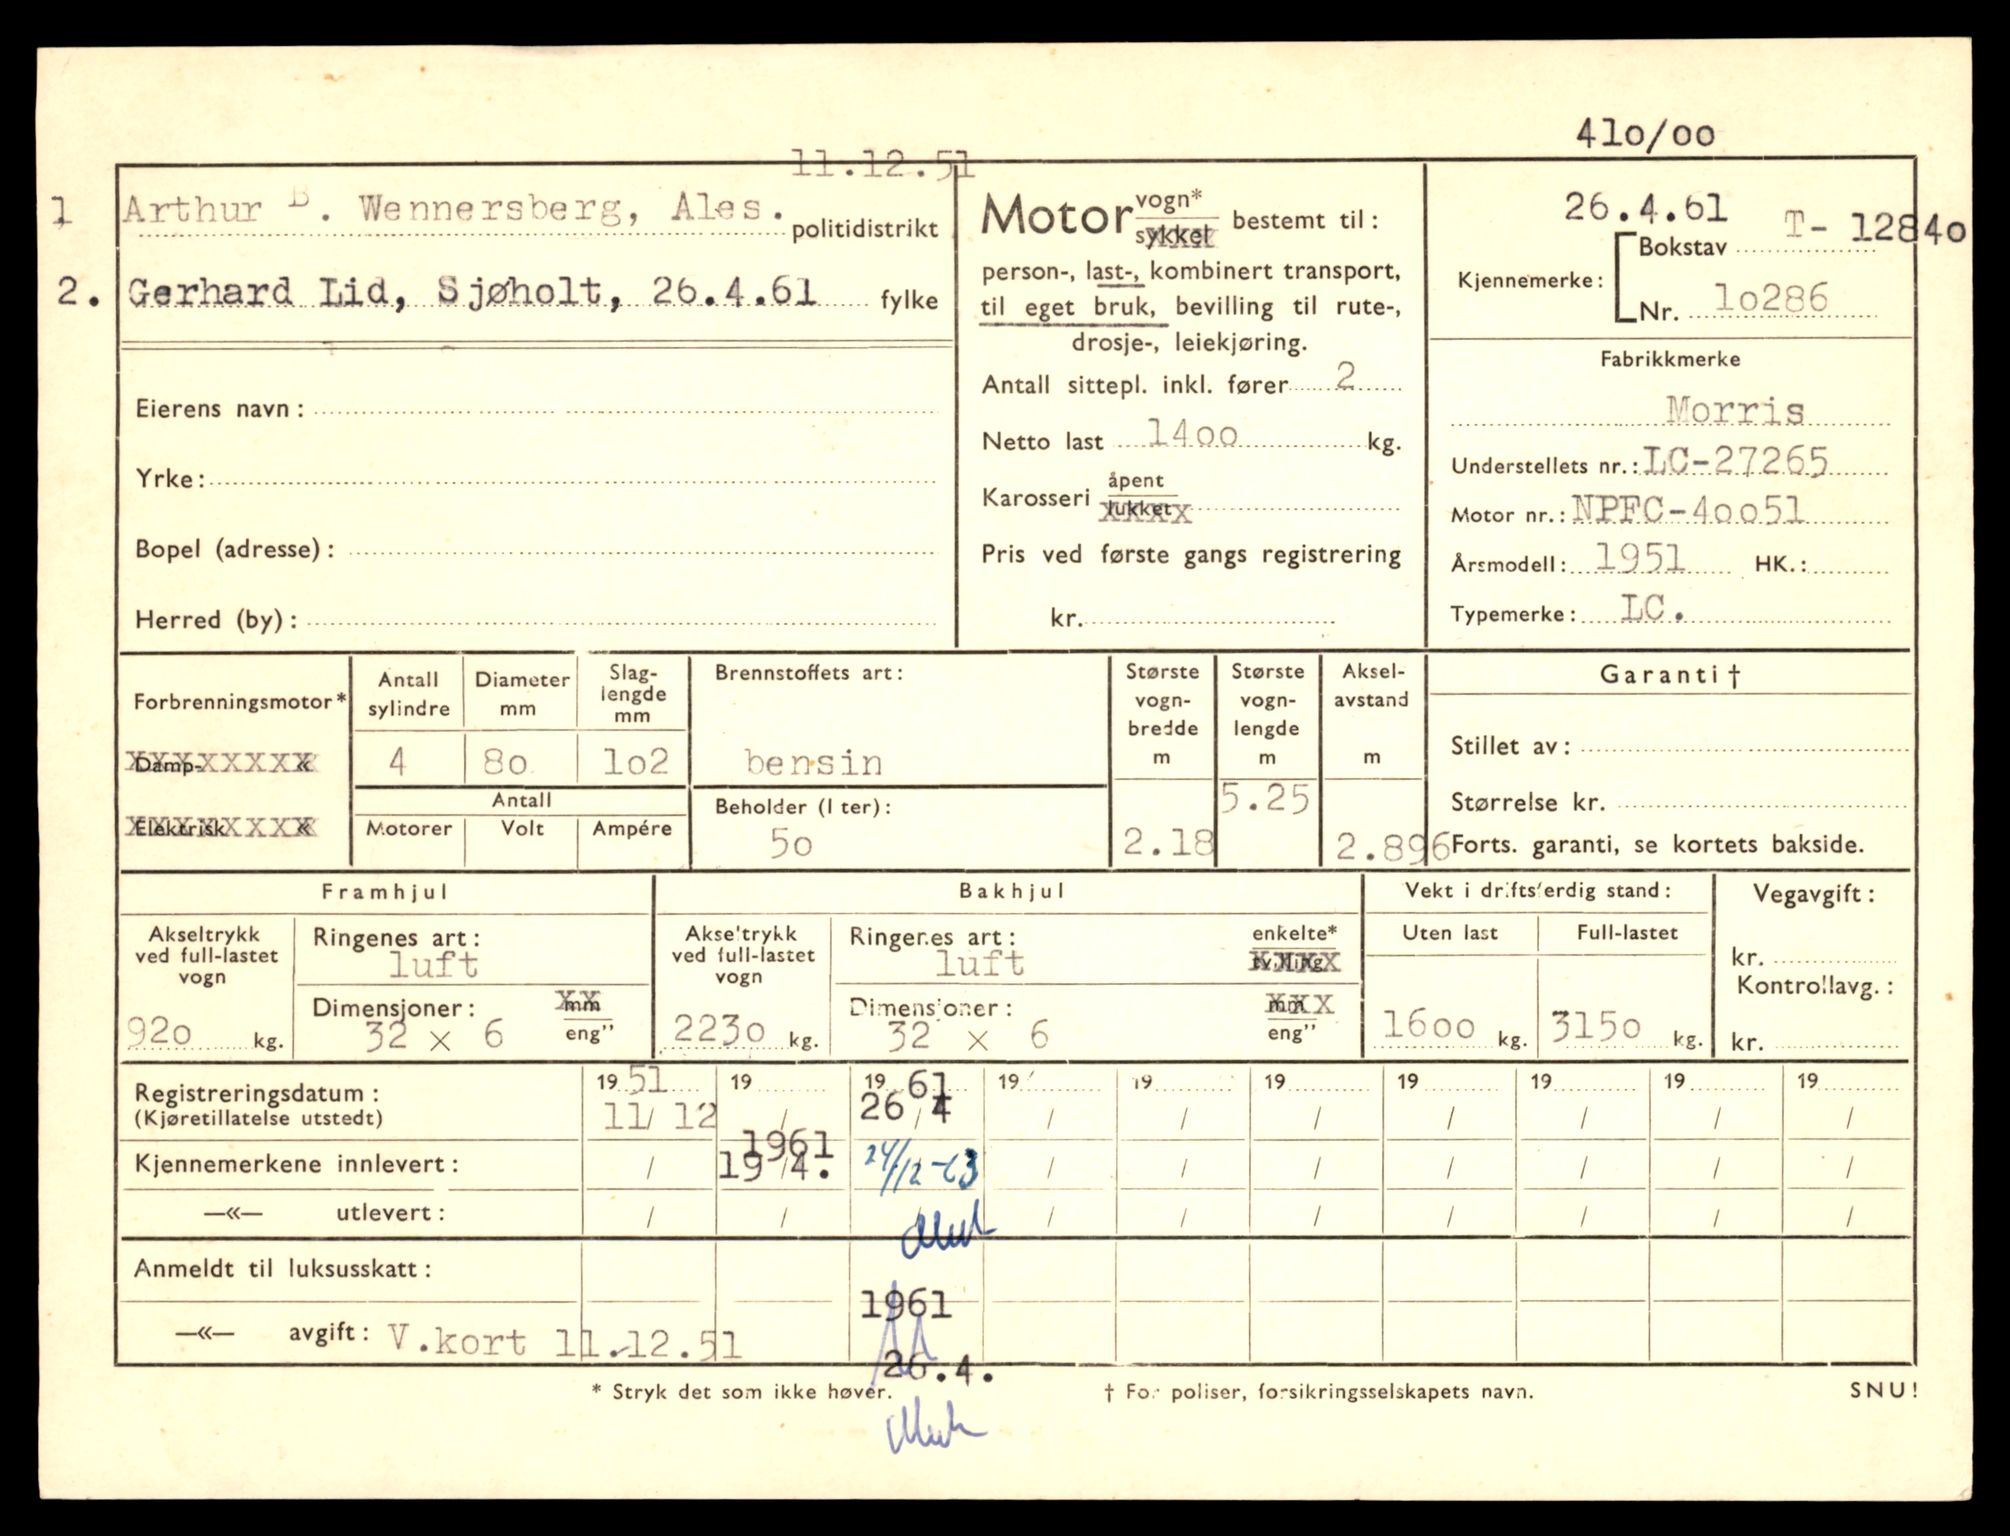 410/00
11.12.51
1 Arthur B. Wennersberg, Ales. politidistrikt
2. Gerhard Lid, Sjøholt, 26.4.61 fylke
Eierens navn:
Yrke:
Bopel (adresse):
Herred (by):
Motor vogn* sykkel bestemt til:
person-, last-, kombinert transport,
til eget bruk, bevilling til rute-,
drosje-, leiekjøring.
Antall sittepl. inkl. fører 2
Netto last 1400 kg.
Karosseri åpent lukket
Pris ved første gangs registrering
kr.
26.4.61 T- 12840
Kjennemerke: Bokstav
Nr. 10286
Fabrikkmerke
Morris
Understellets nr.: LC-27265
Motor nr.: NPFC-40051
Årsmodell: 1951 HK.:
Typemerke: LC.
Forbrenningsmotor*
Damp- «
Elektrisk «
Antall sylindre Diameter mm Slag-lengde mm
4 80 102
Antall
Motorer Volt Ampére
Brennstoffets art:
bensin
Beholder (l ter):
50
Største vogn-bredde m
2.18
Største vogn-lengde m
5.25
Aksel-avstand m
2.896
Garanti †
Stillet av:
Størrelse kr.
Forts. garanti, se kortets bakside.
Framhjul
Akseltrykk ved full-lastet vogn
920 kg.
Ringenes art:
luft
Dimensjoner: mm
32 x 6 eng”
Bakhjul
Akseltrykk ved full-lastet vogn
2230 kg.
Ringenes art: enkelte*
luft tvilling
Dimensjoner: mm
32 x 6 eng”
Vekt i driftsferdig stand:
Uten last Full-lastet
1600 kg. 3150 kg.
Vegavgift:
kr.
Kontrollavg.:
kr.
Registreringsdatum: 19 51 19 19 61 19 19 19 19 19 19 19
(Kjøretillatelse utstedt) 11/ 12 / 26 / 4 / / / / / / /
1961
Kjennemerkene innlevert: / 19 / 4. 24/12-63 / / / / / / /
—«— utlevert: / / / / / / / / / /
Anmeldt til luksusskatt:
1961
—«— avgift: V.kort 11.12.51
26.4.
* Stryk det som ikke høver. † For poliser, forsikringsselskapets navn. SNU!